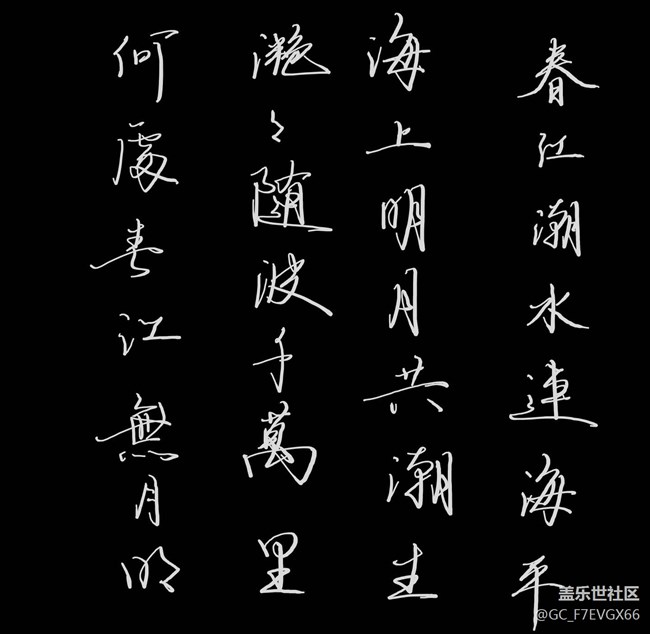 春江潮水連海平
海上明月共潮生
灔〻随波千萬里
何處春江無月明
盖乐世社区
@GC_F7EVGX66